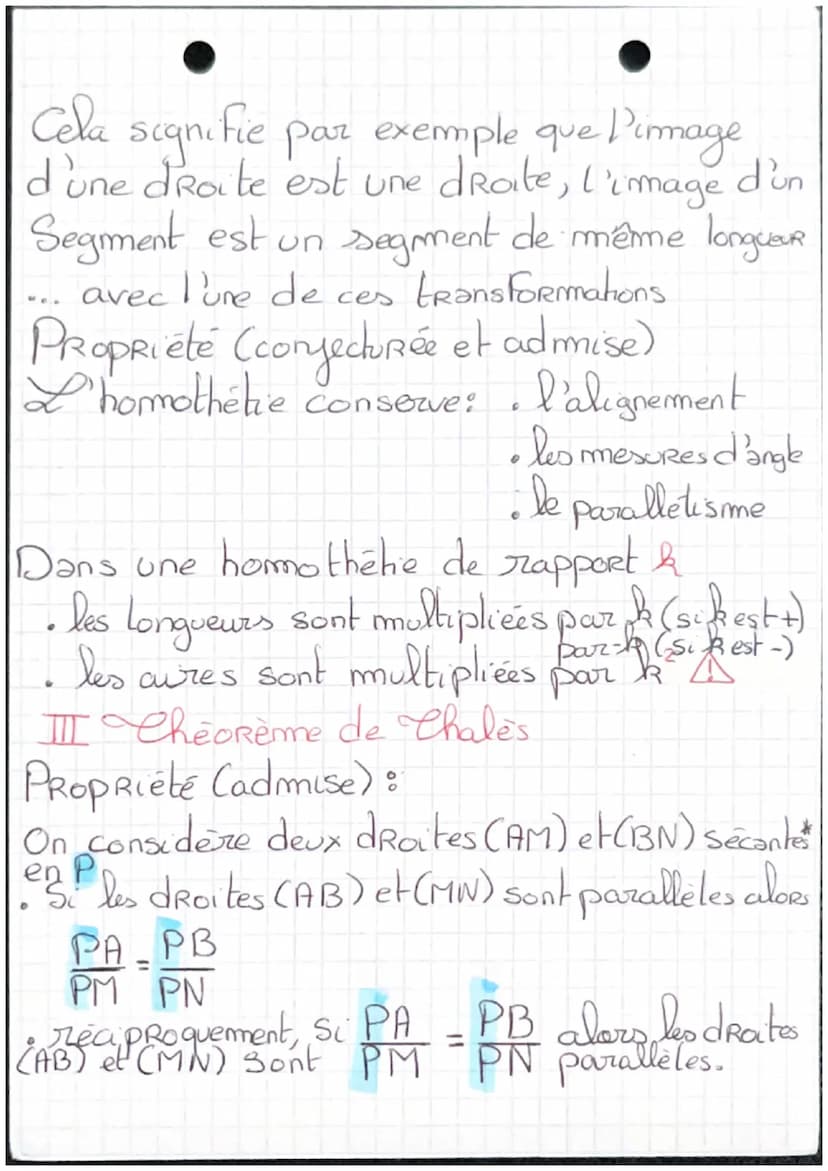 Cela signifie par exemple que l'image
d'une droite est une droite, l'image d'un
Segment est un segment de même longueur
... avec l'une de ces transformations
Propriété (conjecturée et admise)
L'homothétie conserve: . l'alignement
. les mesures d'angle
. le parallélisme
Dans une homothétie de rapport k
. les longueurs sont multipliées par k (si k est +)
par -k (si k est -)
. les aires sont multipliées par k² ⚠
III Théorème de Thalès
Propriété (admise) :
On considère deux droites (AM) et (BN) sécantes*
en P
. Si les droites (AB) et (MN) sont parallèles alors
PA/PM = PB/PN
. réciproquement, si PA/PM = PB/PN alors les droites
(AB) et (MN) sont parallèles.